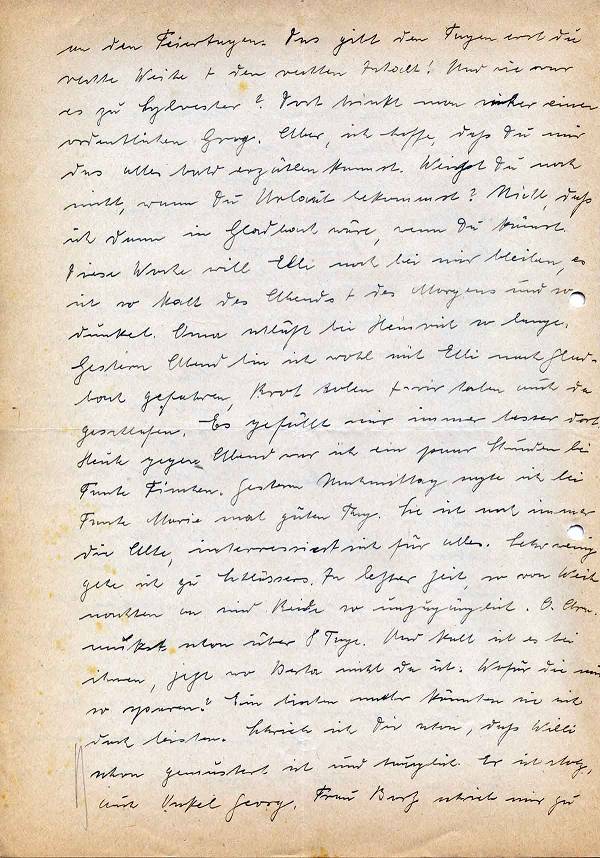 an den Feiertagen. Das gibt den Tagen erst die
rechte Weihe + den rechten Inhalt! Und wie war
es zu Sylvester? Dort trinkt man sicher einen
ordentlichen Grog. Aber, ich hoffe, daß Du mir
das alles bald erzählen kannst. Weißt Du noch
nicht, wann Du Urlaub bekommst? Nicht, daß
ich dann in Gladbach wäre, wenn Du kämst.
Diese Woche will Elli noch bei mir bleiben, es
ist so kalt des Abends + des Morgens und so
dunkel. Oma schläft bei Heinrich so lange.
Gestern Abend bin ich wohl mit Elli nach Glad-
bach gefahren, Brot holen + wir haben auch da
geschlafen. Es gefällt mir immer besser dort.
Heute gegen Abend war ich ein paar Stunden bei
Tante Finchen. Gestern Nachmittag sagte ich bei
Tante Maria mal guten Tag. Sie ist noch immer
die Alte, interressiert sich für alles. Sehr wenig
gehe ich zu Schlössers. In letzter Zeit, so von Weih
nachten an sind Beide so unzugänglich. O.
schon über 8 Tage. Und kalt ist es bei
ihnen, jetzt wo Berta nicht da ist. Wofür die nur
so sparen? Ein bischen mehr könnten sie sich
doch leisten. Schrieb ich Dir schon, daß Willi
schon gemustert ist und tauglich. Er ist stolz,
auch Onkel Georg. Frau schrieb mir zu